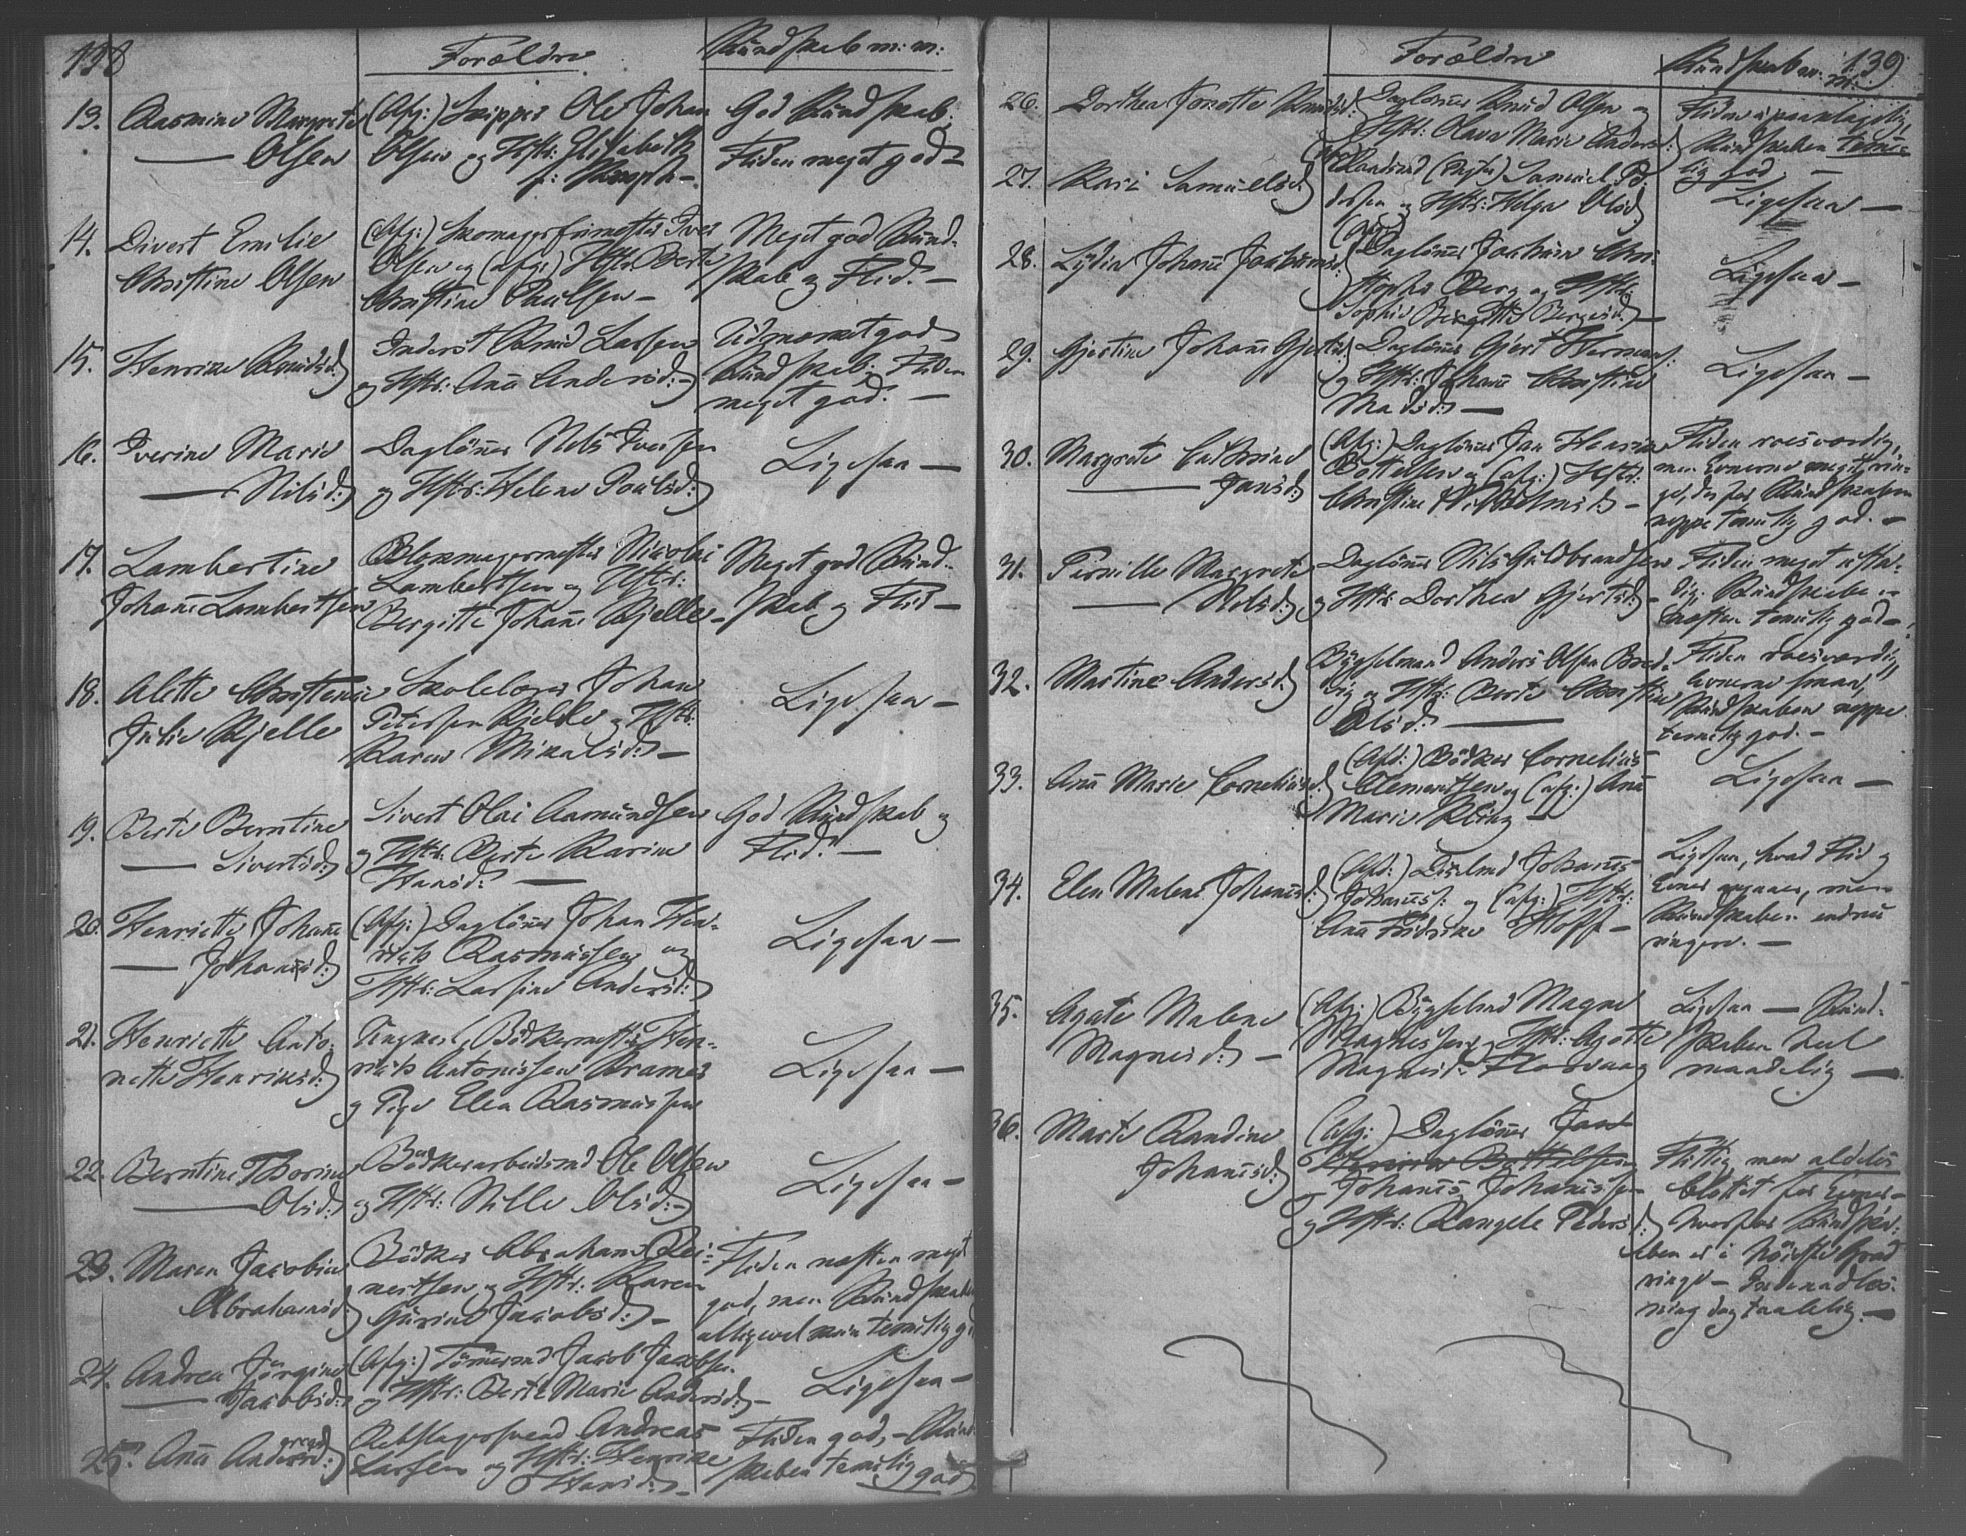 138
Forældre
Kundskab m: m:
13. Rasmine Margrete
Olsen
(Afg:) Skipper Ole Johan
Olsen og Hstr: Elisabeth
f:
God Kundskab;
Fliden meget god –
14. Sivert Emilie
Christine Olsen
(Afg:) Skomagerformester Iver
Olsen og (afg:) Hstr: Berte
Christine Paulsen –
Meget god Kund-
skab og Flid. –
15. Henrikke Knudsd:
Inderst Knud Larsen
og Hstr: Ana Andersd: –
Udmærket god
Kundskab; Fliden
meget god. –
16. Iverine Marie
Nilsd:
Daglönner Nils Iversen
og Hstr: Helene Poulsd:
Ligesaa –
17. Lambertine
Johane Lambertsen
Blokmagermester Nicolai
Lambertsen og Hstr:
Bergitte Johane Kjelle –
Meget god Kund-
skab og Flid –
18. Alette Christense
Julie Kjelle
Skolelærer Johan
Petersen Kjelle og Hstr:
Karen Mikalsd: –
Ligesaa –
19. Berte Berntine
Sivertsd:
Sivert Olai Aamundsen
og Hstr: Berte Karine
Hansd: –
God Kundskab og
Flid. –
20. Henriette Johane
Johansd:
(Afg:) Daglönner Johan Hen-
rich Rasmussen og
Hstr: Larsine Andersd:
Ligesaa –
21. Henriette Anto-
nette Henriksd:
Ungkarl Bödkermester Hen-
rich Antonissen Kramer
og Pige Elen Rasmussen
Ligesaa –
22. Berntine Thorine
Olsd:
Bödkerarbeidsmd Ole Olsen
og Hstr: Nille Olsd: –
Ligesaa –
23. Maren Jacobine
Abrahamsd:
Bödker Abraham Rei-
nertsen og Hstr: Karen
Gurine Jacobsd: –
Fliden næsten meget
god, men Kundskaben
alligevel kun temelig
24. Andrea Jörgine
Jacobsd:
(Afg:) Tömmermd Jacob Jacobsen
og Hstr: Berte Marie Andersd: –
Ligesaa –
25. Ana Andersd:
Rebslagersvend Andreas
Larsen og Hstr: Henrikke
Hansd: –
Fliden god, – Kund-
skaben temelig
god
139
Forældre
Kundskab m: m:
26. Dorthea Jonette Knudsd:
Daglönner Knud Olsen og
Hstr: Olava Marie Andersd:
Fliden upaaklagelig,
Kundskaben teme-
lig god –
27. Kari Samuelsd:
Samuel Pe-
dersen og Hstr: Helga Olsd:
Ligesaa –
28. Lydia Johane Joakimsd:
Daglönner Joakim Chri-
stopher Berg og Hstr:
Sophie Bergitte Børgesd: –
Ligesaa –
29. Gjertine Johane Gjertsd:
Daglönner Gjert Hermans:
og Hstr: Johane Christine
Madsd: –
Ligesaa –
30. Margrete Cathrine
Jansd:
(Afg:) Daglönner Jan Henrik
Bottelsen og (afg:) Hstr:
Christine Vilhelmsd: –
Fliden roesværdig,
men Evnerne meget rin-
ge, derfor Kundskaben
neppe temelig god. –
31. Pernille Margrete
Nilsd:
Daglönner Nils Guldbrandsen
og Hstr: Dorthea Gjertsd: –
Fliden meget ustadig. Kundskaben
næsten temelig god –
32. Martine Andersd:
Bygselmand Anders Olsen Bred-
vig og Hstr: Berte Christine
Olsd: –
Fliden roesværdig,
Evnerne smaa,
Kundskaben neppe
temelig god. –
33. Ana Marie Corneliusd:
(Afd:) Bödker Cornelius
Clementsen og (afg:) Ana
Marie Kling –
Ligesaa –
34. Elen Malene Johanesd:
(Afd:) Johanes
Johaness: og (afg:) Hstr:
Ana Fredrikke Hoff –
Ligesaa, hvad Flid og
Evner angaaer, men
Kundskaben endnu
ringere. –
35. Agate Malene
Magnesd: –
(Afg:) Bygselmd Magne
Magnessen og Hstr: Agatte
Magnesd: Florvaag
Ligesaa – Kund-
skaben taal-
maadelig –
36. Marte Randine
Johanesd:
(Afg:) Daglönner Jan
Henrik Bottelsen
Johanes Johanessen
og Hstr: Rangele Pedersd:
Flittig men aldeles
blottet for Evner –
hvorfor Kundska-
ben er i höieste Grad
ringe – Indenadlæs-
ning dog taalelig –